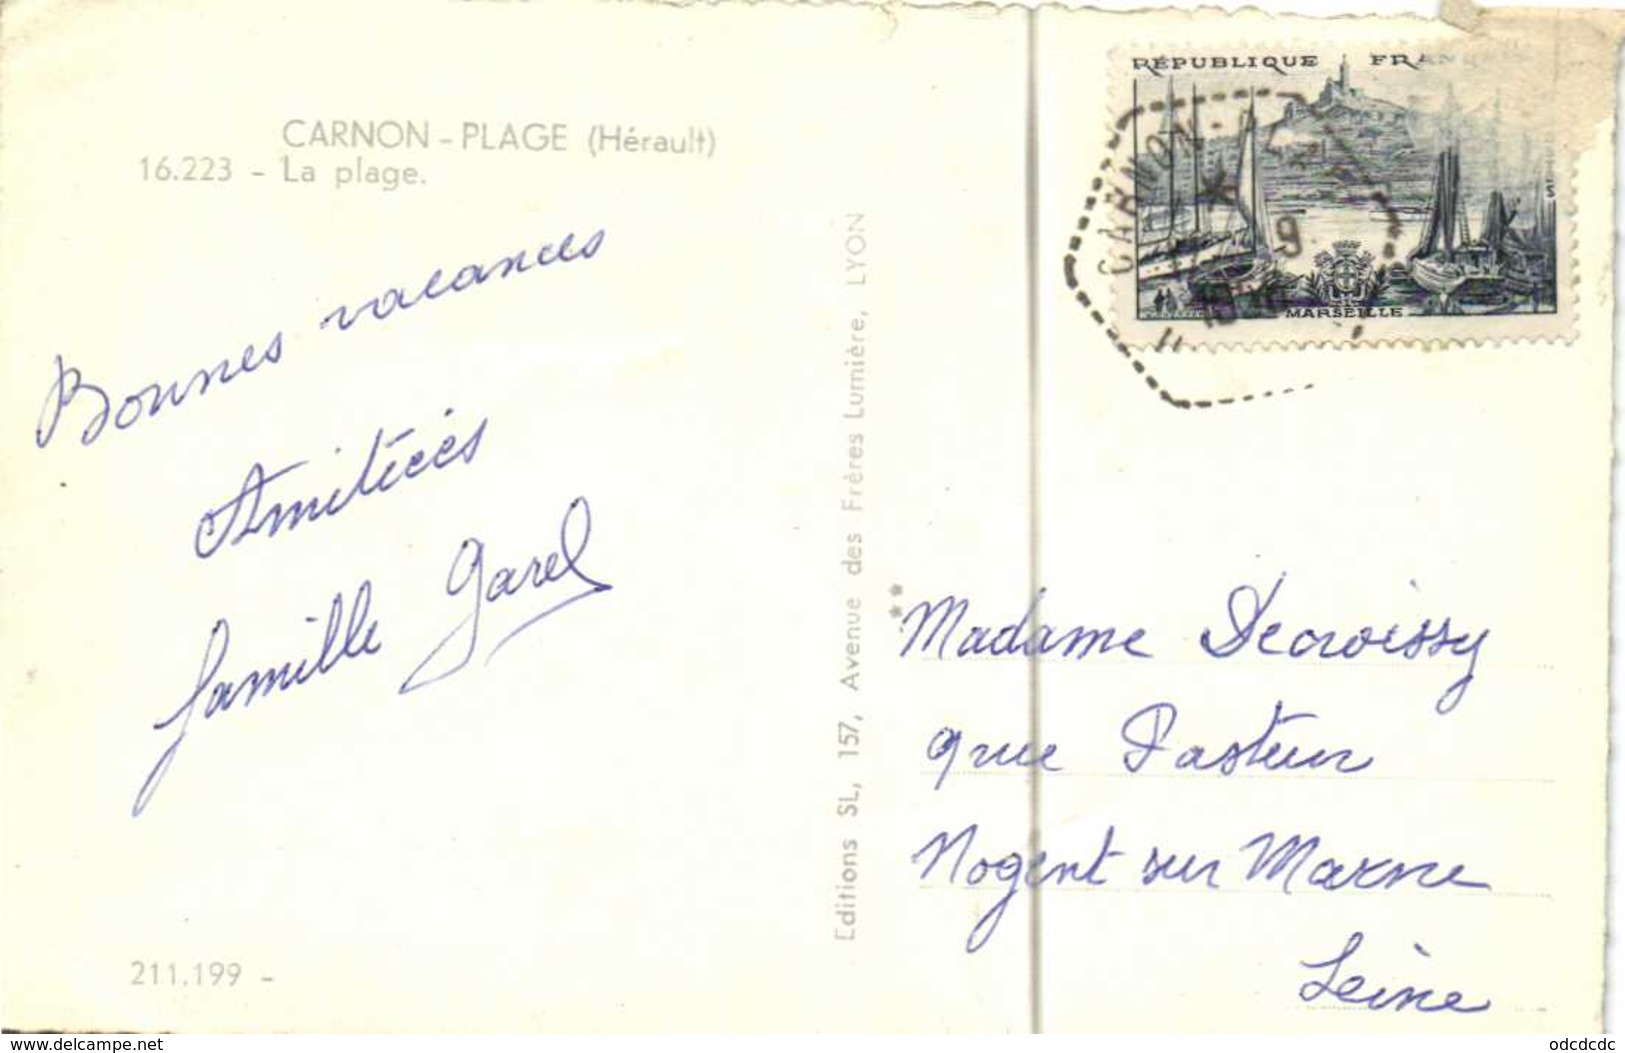 CARNON - PLAGE (Hérault)
16.223 - La plage.
Bonnes vacances
Amitiées
famille Garel
211.199 -
Editions SL, 157, Avenue des Frères Lumière, LYON
**
RÉPUBLIQUE FRANÇ
MARSEILLE
CARNON-
9
Madame Decroissy
9 rue Pasteur
Nogent sur Marne
Seine
www.delcampe.net
odcdcdc